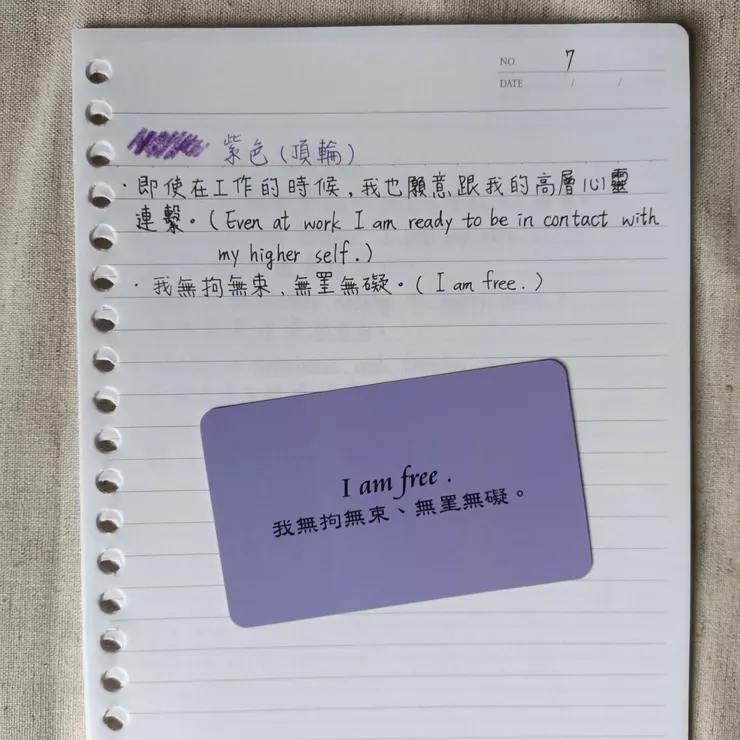 NO. 7
DATE / /
紫色(頂輪)
·即使在工作的時候,我也願意跟我的高層心靈
連繫。(Even at work I am ready to be in contact with
my higher self.)
·我無拘無束、無罣無礙。(I am free.)
I am free.
我無拘無束、無罣無礙。